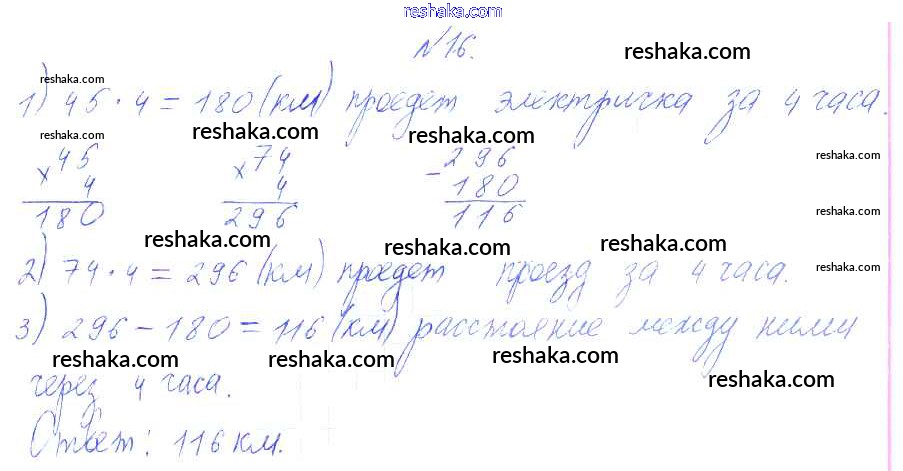 reshaka.com
№16.
reshaka.com
reshaka.com
1) 45 · 4 = 180 (км) проедет электричка за 4 часа.
reshaka.com reshaka.com reshaka.com
× 45 × 74 - 296 reshaka.com
4 4 180
180 296 116 reshaka.com
reshaka.com reshaka.com reshaka.com
2) 74 · 4 = 296 (км) проедет проезд за 4 часа. reshaka.com
3) 296 - 180 = 116 (км) расстояние между ними
reshaka.com reshaka.com reshaka.com
через 4 часа. reshaka.com
Ответ: 116 км.